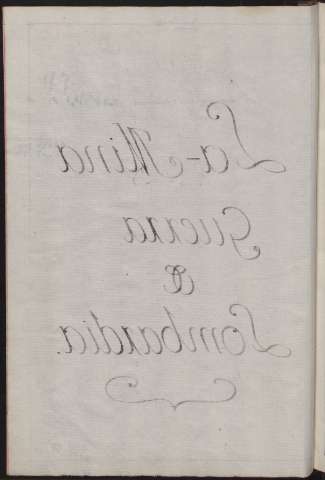 La-Mina
Guerra
de
Lombardia.